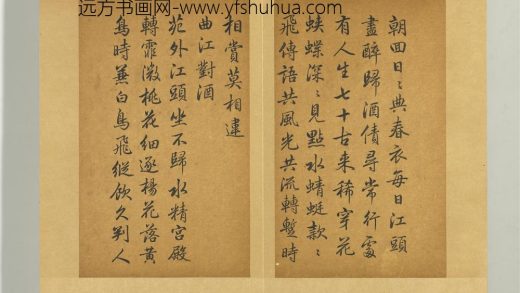 远方书画网-www.yfshuhua.com
朝回日〻典春衣每日江頭
盡醉歸酒債尋常行處
有人生七十古來稀穿花
蛺蝶深〻見點水蜻蜓款〻
飛傳語共風光共流轉蹔時
相賞莫相違
曲江對酒
苑外江頭坐不歸水精宮殿
轉霏微桃花細逐楊花落黃
鳥時兼白鳥飛縱飲久判人